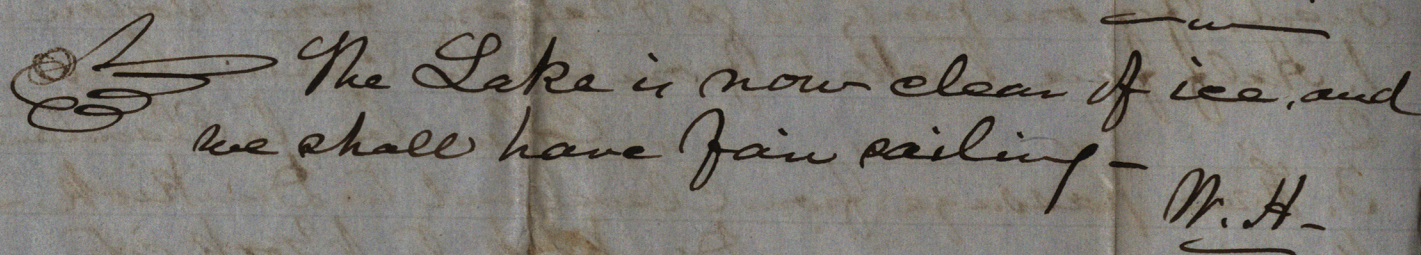 The Lake is now clear of ice, and
we shall have fair sailing—
W. H—